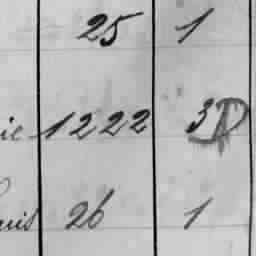 25 1
ie 1222 3D
uis 26 1